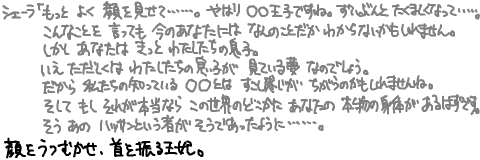 シェーラ「もっと よく 顔を見せて……。 やはり ○○王子ですね。ずいぶんと たくましくなって……。
こんなことを 言っても 今のあなたには なんのことだか わからないかもしれません。
しかし あなたは きっと わたしたちの息子。
いえ ただしくは わたしたちの息子が 見ている夢 なのでしょう。
だから 私たちの知っている ○○とは すこし感じが ちがうのかもしれませんね。
そして もし それが本当なら この世界のどこかに あなたの 本物の身体が あるはずです。
そう あの ハッサンという者が そうであったように……。
顔をうつむかせ、首を振る王妃。